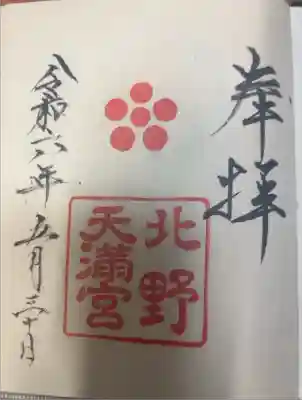 奉拝
北野
天満宮
令和六年五月三十日